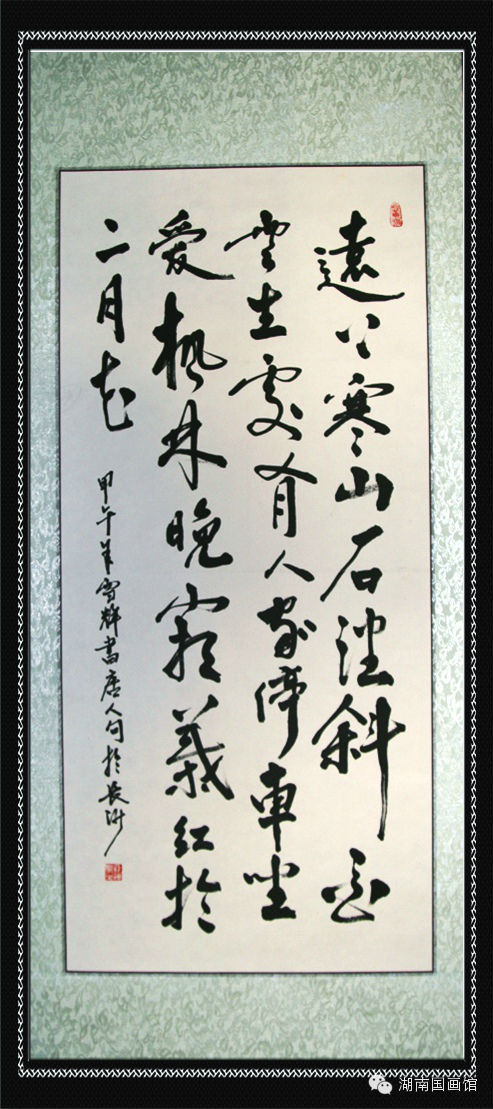 遠上寒山石徑斜白
雲生處有人家停車坐
愛楓林晚霜葉紅於
二月花
甲午年雪書唐人句於長沙
湖南国画馆